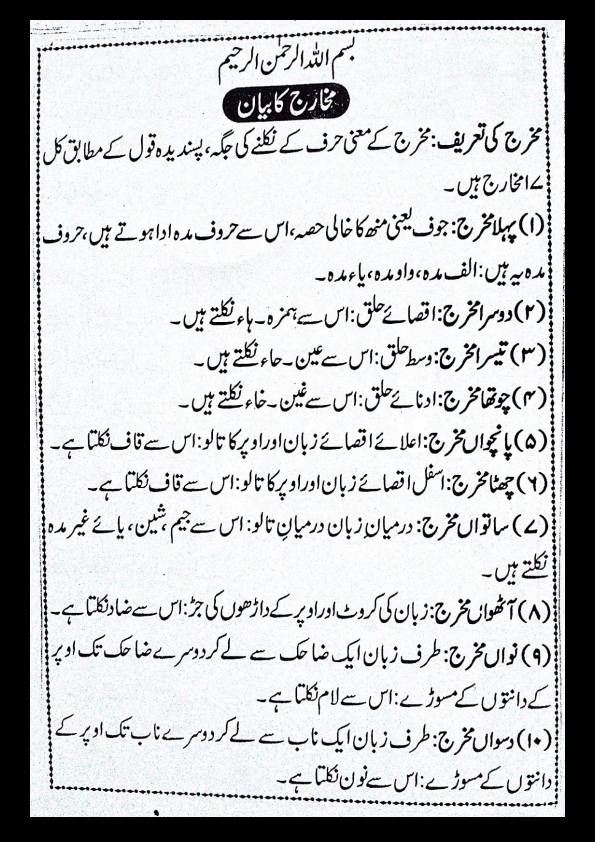 بسم اللہ الرحمٰن الرحیم
مخارج کا بیان
مخرج کی تعریف: مخرج کے معنی حرف کے نکلنے کی جگہ، پسندیدہ قول کے مطابق کل
۱۷ مخارج ہیں۔
(۱) پہلا مخرج: جوف یعنی منھ کا خالی حصہ، اس سے حروف مدہ ادا ہوتے ہیں، حروف
مدہ یہ ہیں: الف مدہ، واو مدہ، یاء مدہ۔
(۲) دوسرا مخرج: اقصائے حلق: اس سے ہمزہ۔ ہاء نکلتے ہیں۔
(۳) تیسرا مخرج: وسط حلق: اس سے عین۔ حاء نکلتے ہیں۔
(۴) چوتھا مخرج: ادنائے حلق: اس سے غین۔ خاء نکلتے ہیں۔
(۵) پانچواں مخرج: اعلائے اقصائے زبان اور اوپر کا تالو: اس سے قاف نکلتا ہے۔
(۶) چھٹا مخرج: اسفل اقصائے زبان اور اوپر کا تالو: اس سے قاف نکلتا ہے۔
(۷) ساتواں مخرج: درمیانِ زبان درمیانِ تالو: اس سے جیم، شین، یائے غیر مدہ
نکلتے ہیں۔
(۸) آٹھواں مخرج: زبان کی کروٹ اور اوپر کے داڑھوں کی جڑ: اس سے ضاد نکلتا ہے۔
(۹) نواں مخرج: طرف زبان ایک ضاحک سے لے کر دوسرے ضاحک تک اوپر
کے دانتوں کے مسوڑے: اس سے لام نکلتا ہے۔
(۱۰) دسواں مخرج: طرف زبان ایک ناب سے لے کر دوسرے ناب تک اوپر کے
دانتوں کے مسوڑے: اس سے نون نکلتا ہے۔